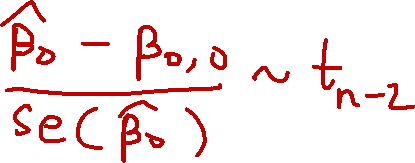 \frac{\hat{\beta}_0 - \beta_{0,0}}{se(\hat{\beta}_0)} \sim t_{n-2}